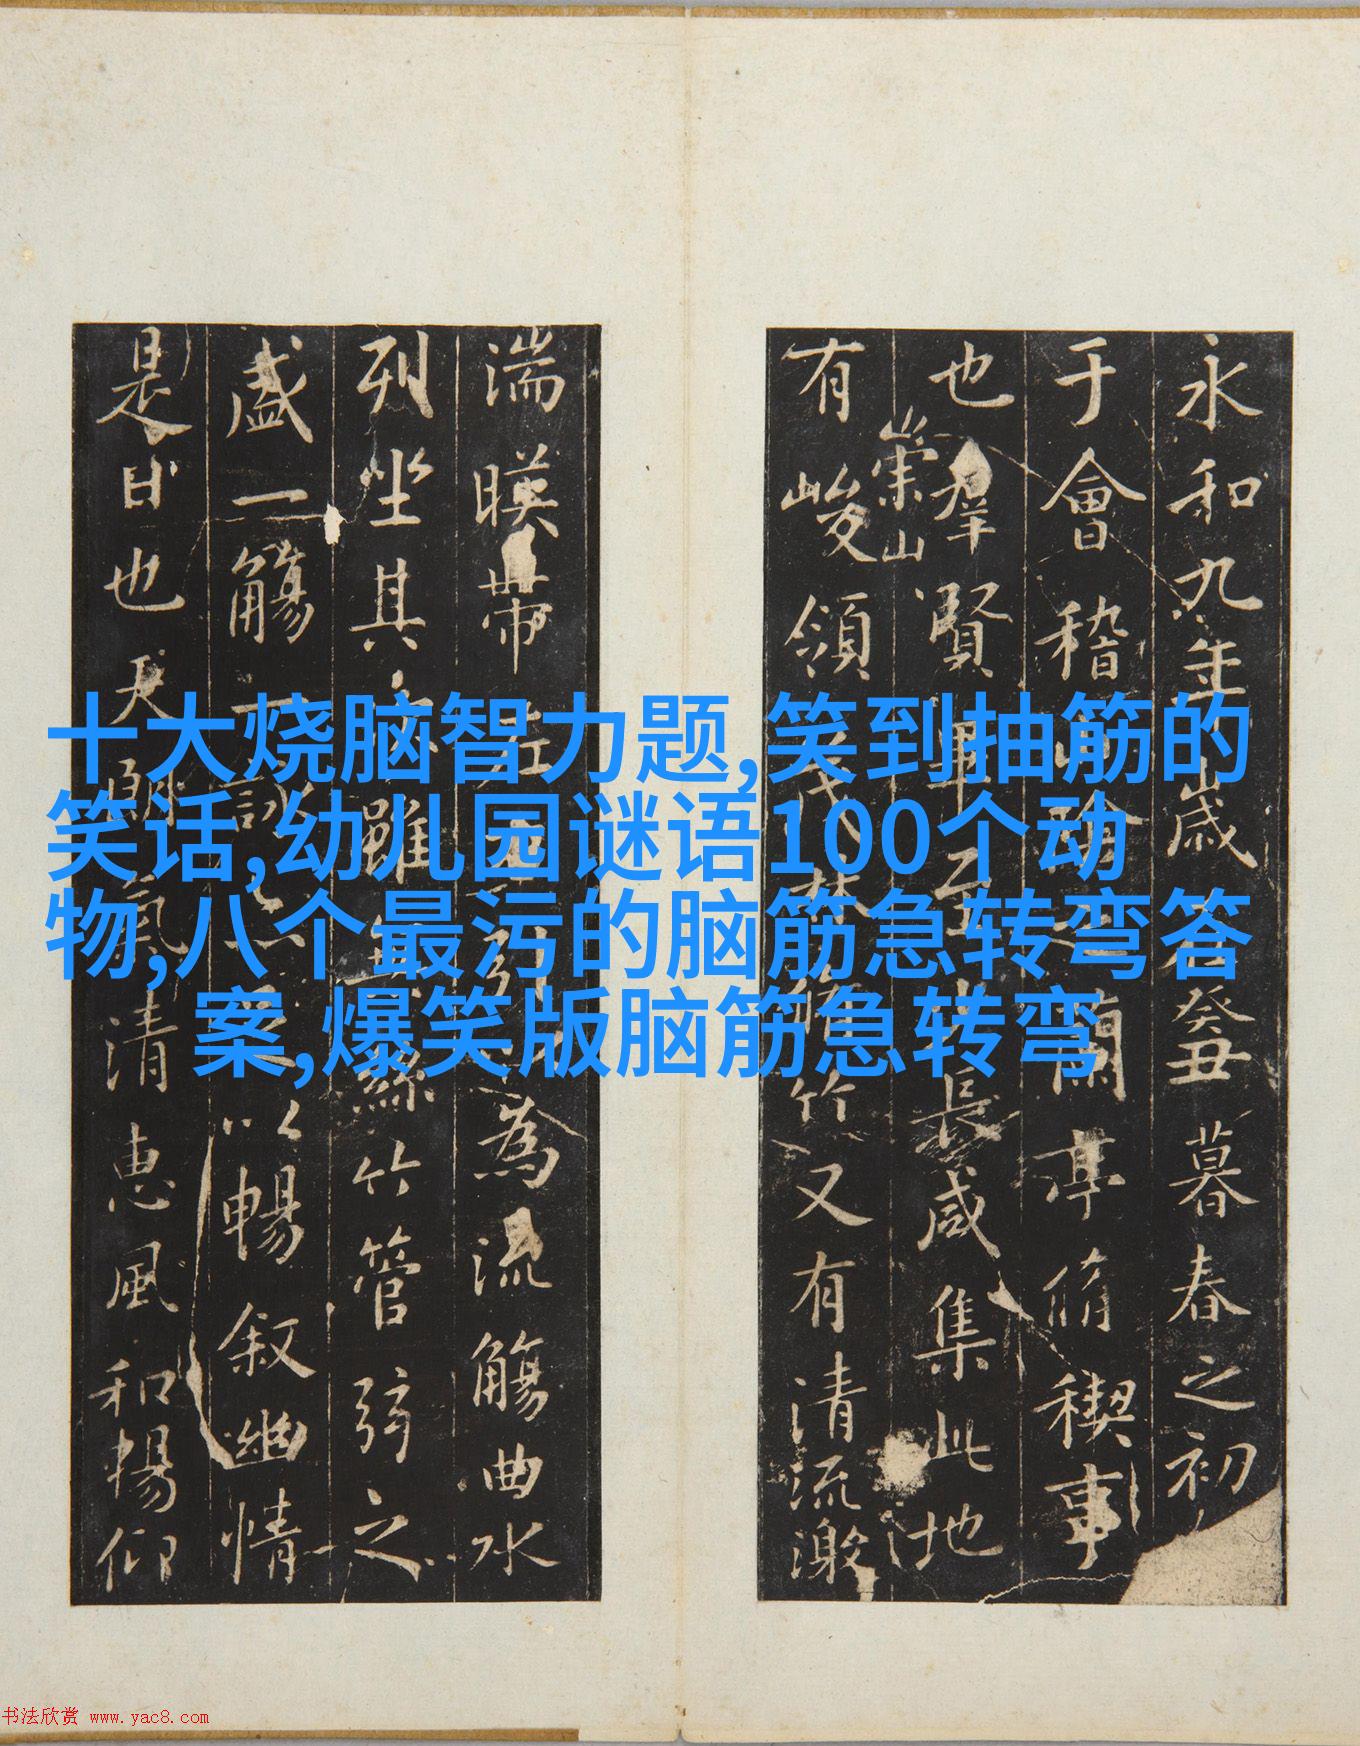 永和九年歲在癸丑暮春之初
于會稽山陰之蘭亭脩稧事
也羣賢畢至少長咸集此地
崇山
有峻領茂林脩竹又有清流激
湍暎帶左右引以為流觴曲水
列坐其次雖無絲竹管弦之
盛一觴一詠亦足以暢敘幽情
是日也天朗氣清惠風和暢仰
十大烧脑智力题,笑到抽筋的
笑话,幼儿园谜语100个动
物,八个最污的脑筋急转弯答
案,爆笑版脑筋急转弯
书法欣赏 www.yac8.com